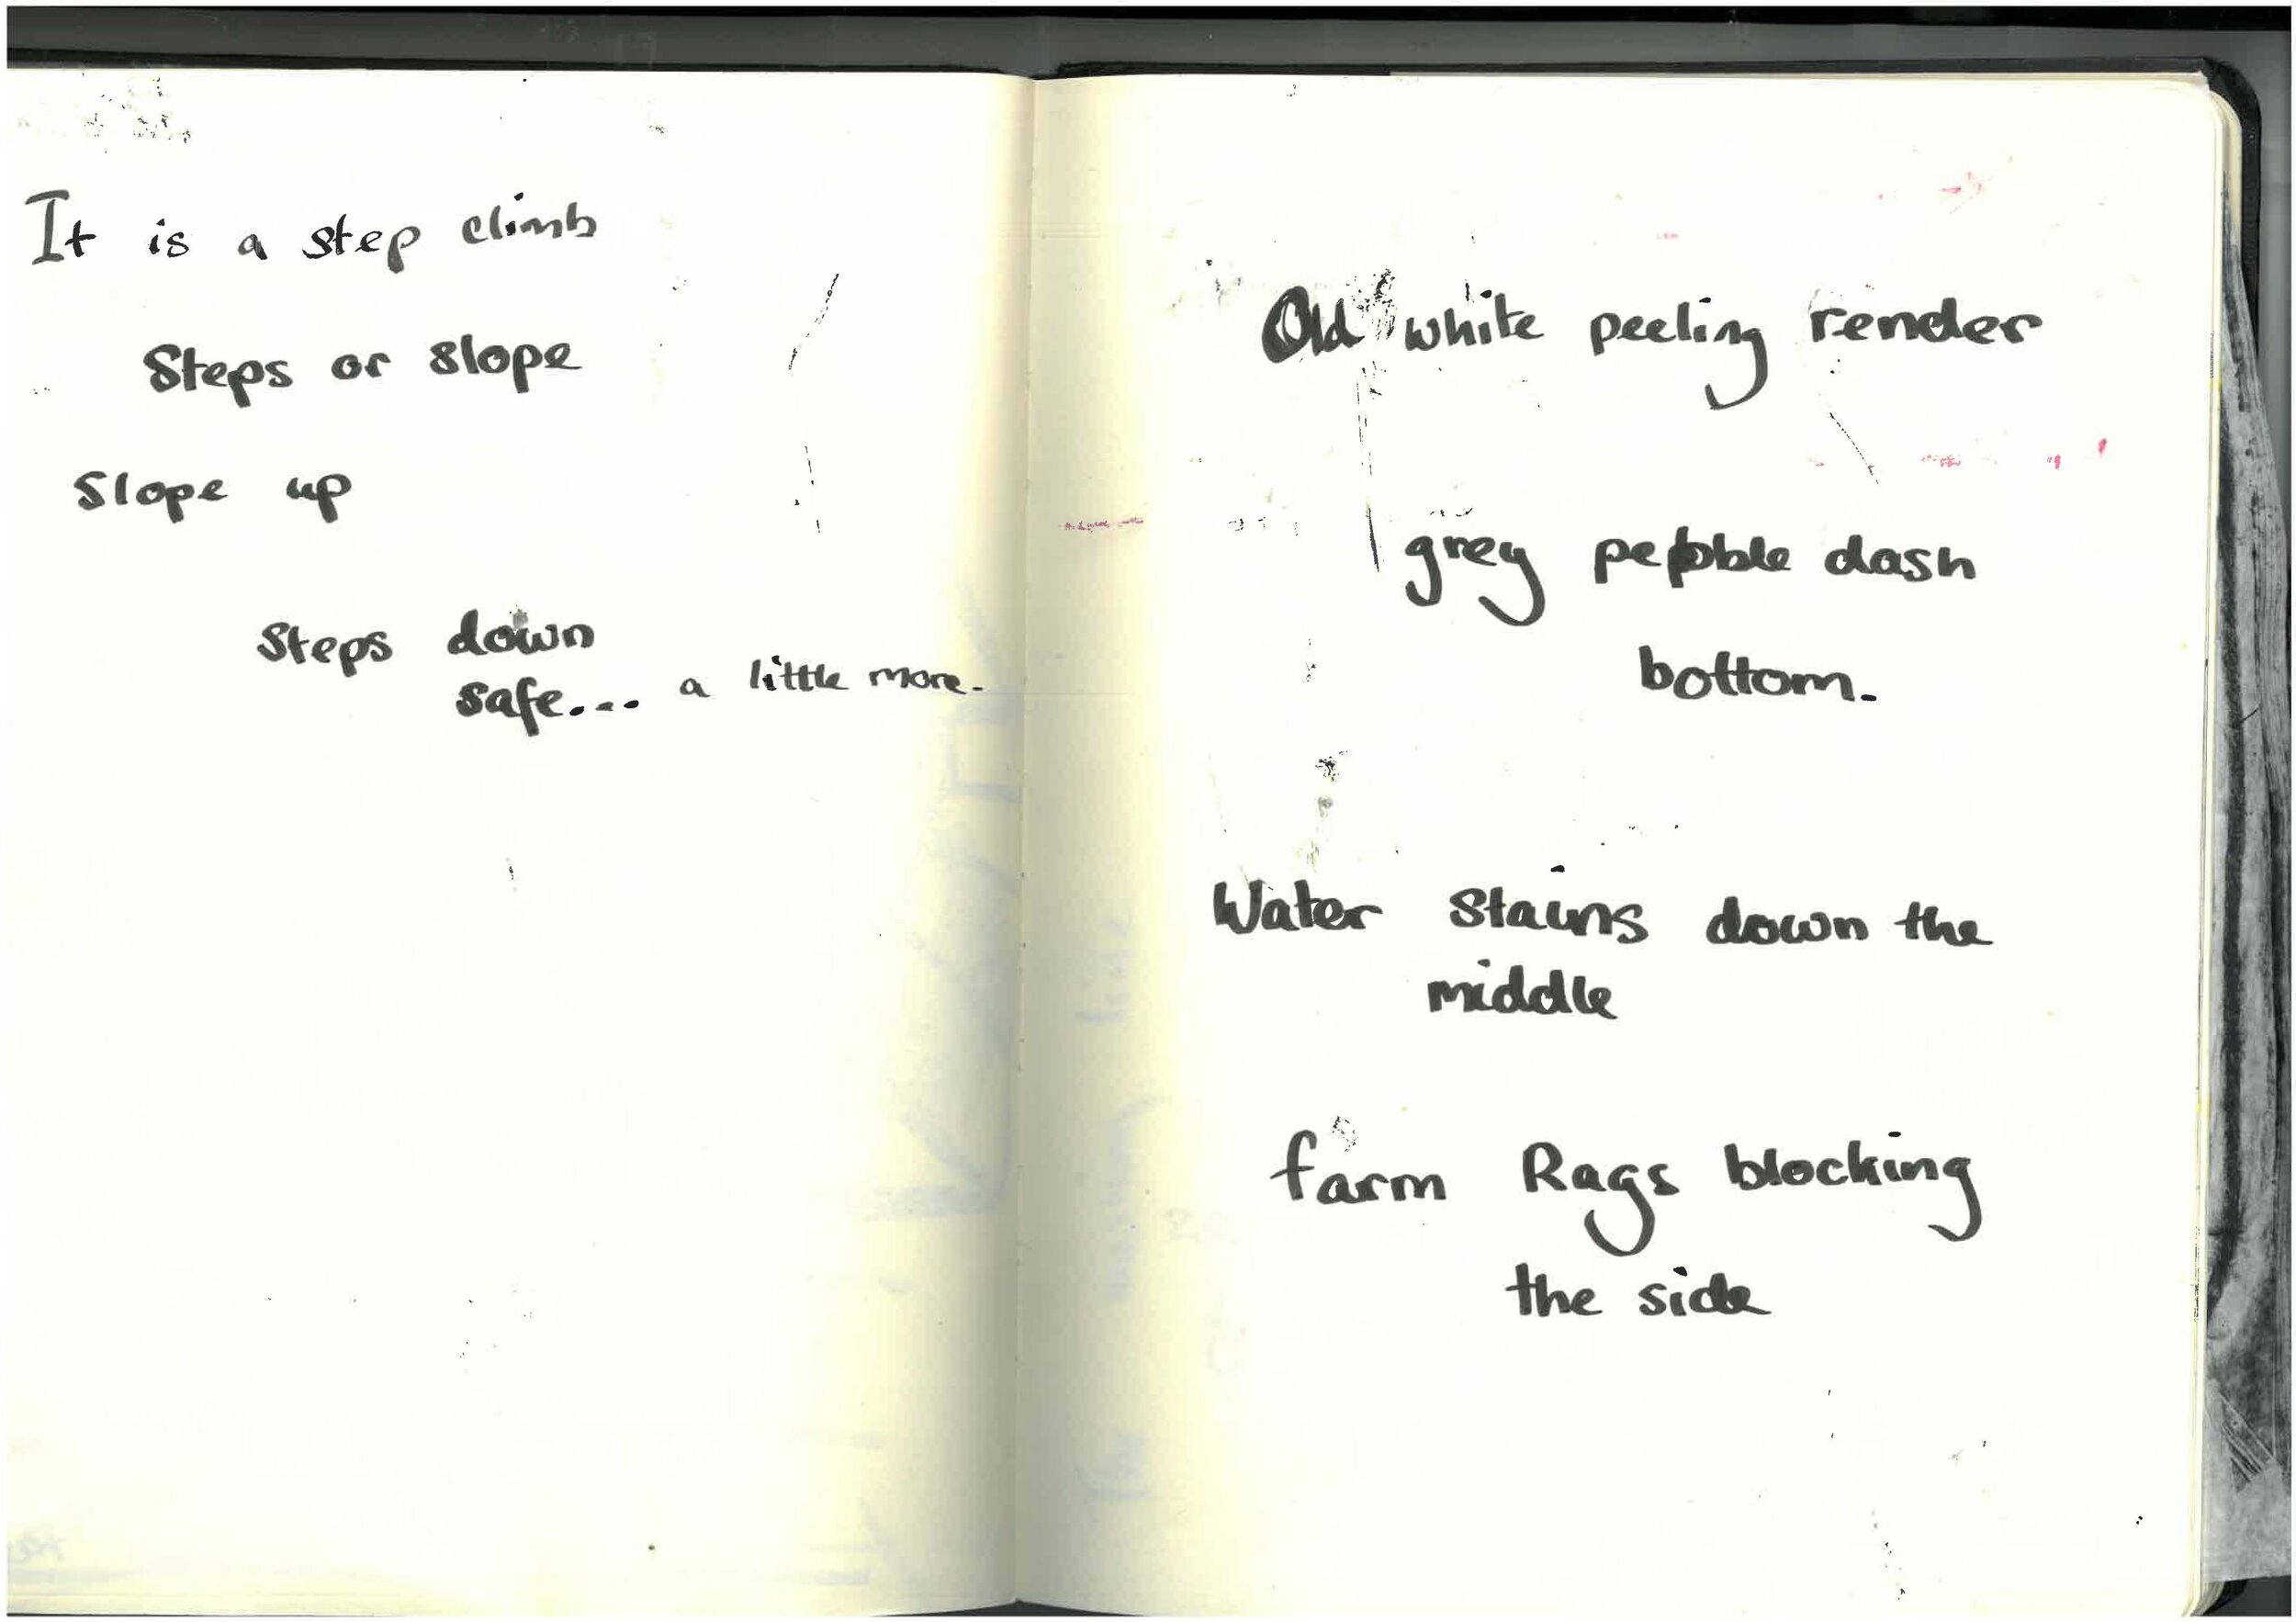 It is a step climb
Steps or slope
Slope up
Steps down
safe... a little more.
Old white peeling render
grey pebble dash
bottom.
Water stains down the
middle
farm Rags blocking
the side